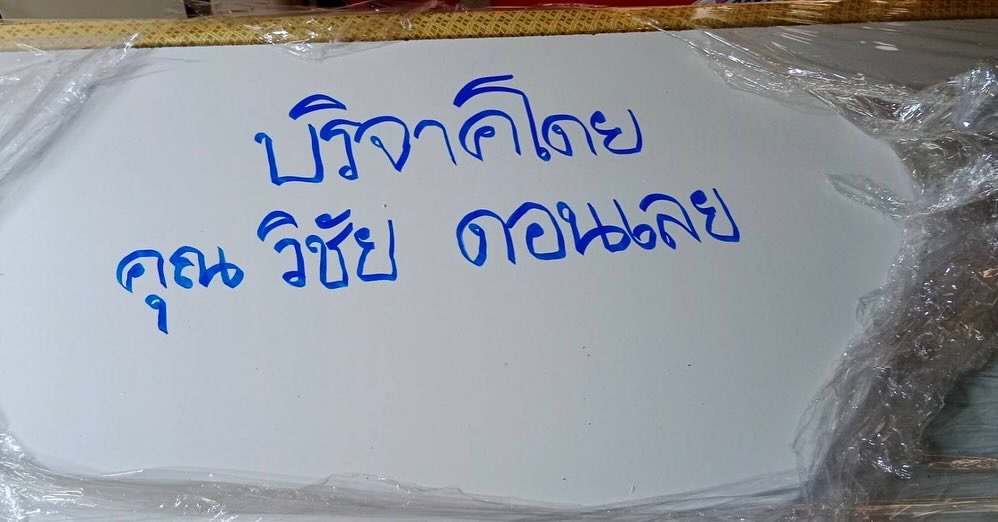 บริจาคโดย
คุณ วิชัย ดอนเลย